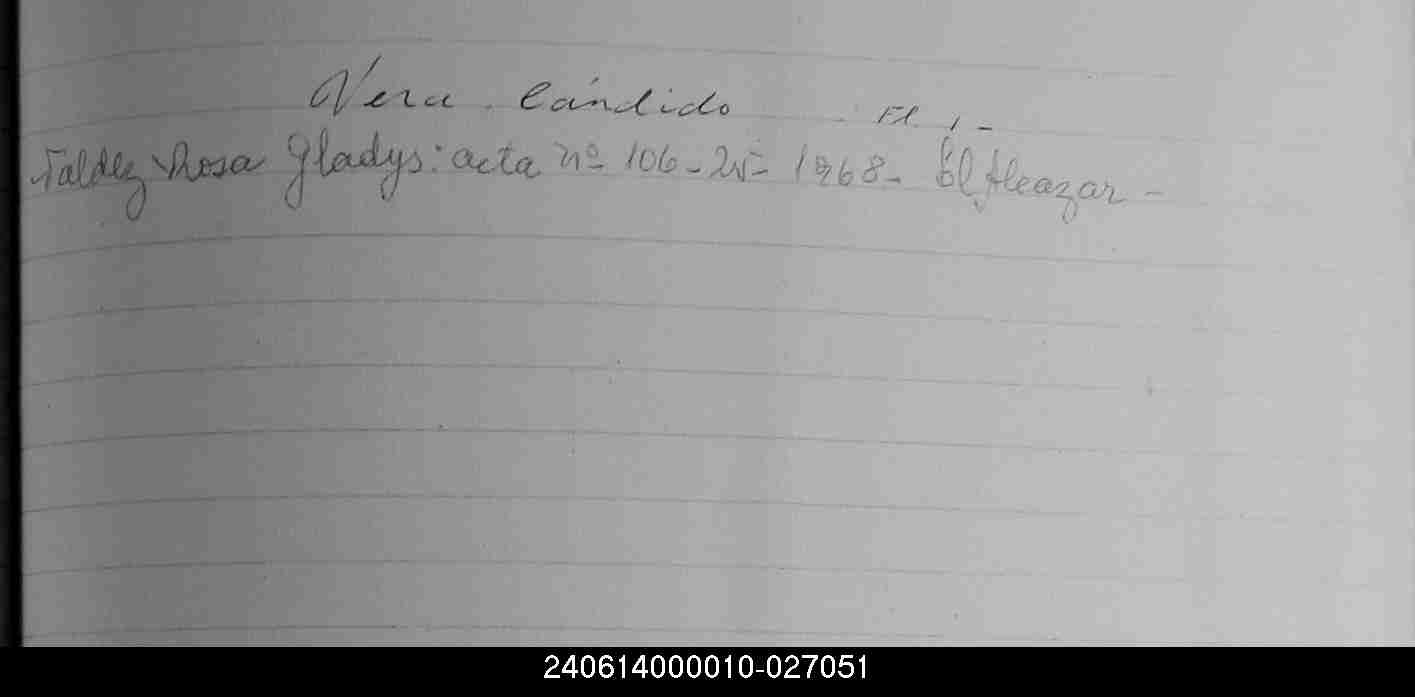 Vera Cándido Fl 1-
Valdez Rosa Gladys: acta nº 106 - 25 - 1968 - El Alcazar -
240614000010-027051